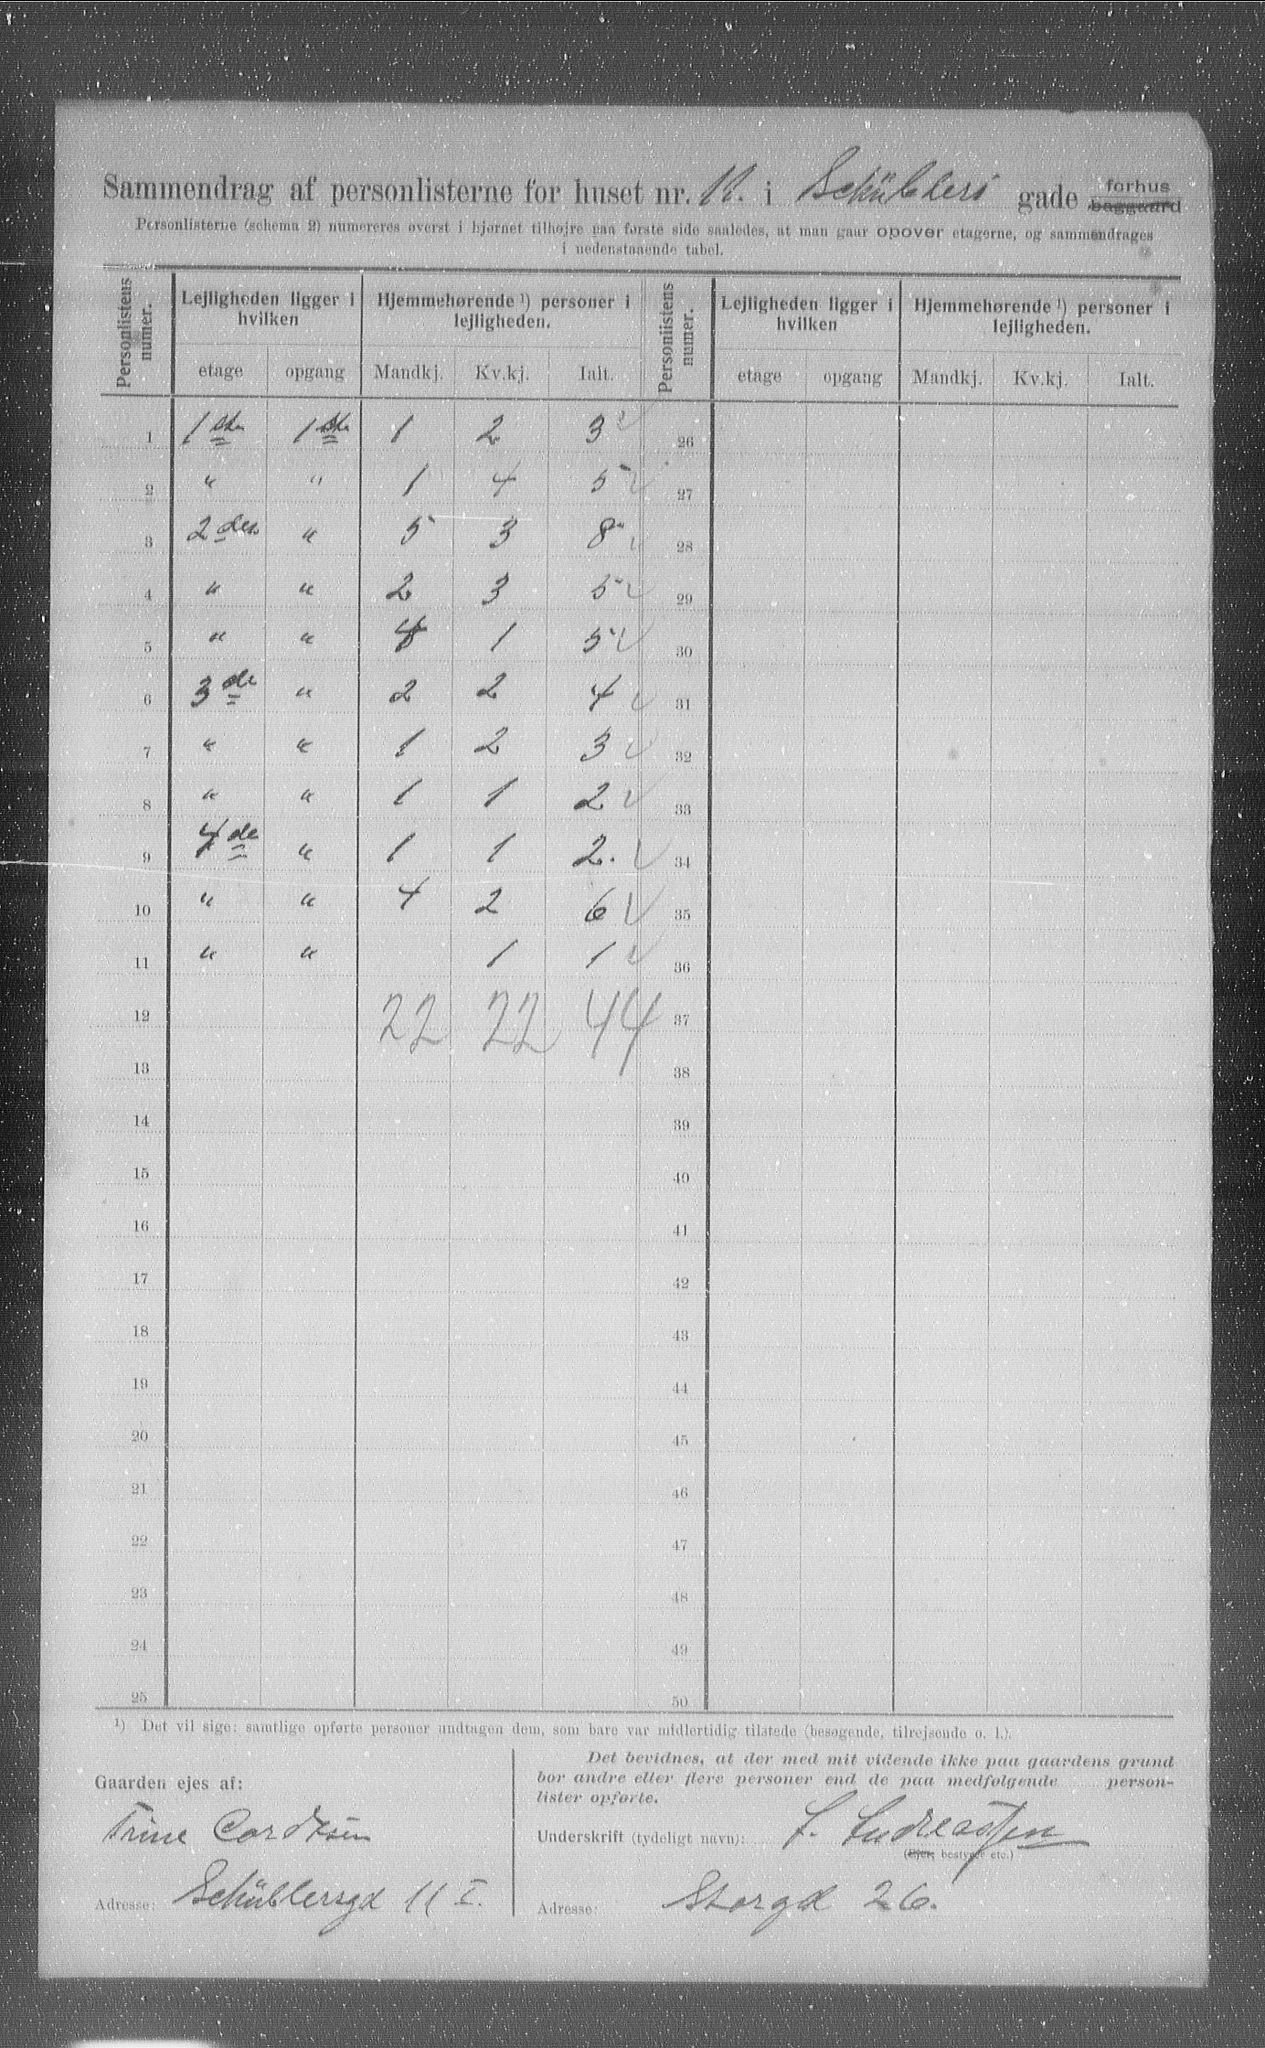 Sammendrag af personlisterne for huset nr. 11. i Schüblers gade forhus baggaard
Personlisterne (schema 2) numereres øverst i hjørnet tilhøjre paa første side saaledes, at man gaar opover etagerne, og sammendrages
i nedenstaaende tabel.
Personlistens numer. Lejligheden ligger i hvilken Hjemmehørende ¹) personer i lejligheden. Personlistens numer. Lejligheden ligger i hvilken Hjemmehørende ¹) personer i lejligheden.
etage opgang Mandkj. Kv.kj. Ialt. etage opgang Mandkj. Kv.kj. Ialt.
1 1ste 1ste 1 2 3 26
2 " " 1 4 5 27
3 2den " 5 3 8 28
4 " " 2 3 5 29
5 " " 4 1 5 30
6 3de " 2 2 4 31
7 " " 1 2 3 32
8 " " 1 1 2 33
9 4de " 1 1 2. 34
10 " " 4 2 6 35
11 " " 1 1 36
12 22 22 44 37
13 38
14 39
15 40
16 41
17 42
18 43
19 44
20 45
21 46
22 47
23 48
24 49
25 50
¹) Det vil sige: samtlige opførte personer undtagen dem, som bare var midlertidig tilstede (besøgende, tilrejsende o. l.).
Gaarden ejes af:
Trine Cordtsen
Adresse: Schüblersgd 11 I.
Det bevidnes, at der med mit vidende ikke paa gaardens grund
bor andre eller flere personer end de paa medfølgende person-
lister opførte.
Underskrift (tydeligt navn): L. Andreassen
(Ejer, bestyrer etc.)
Adresse: Storgd 26.